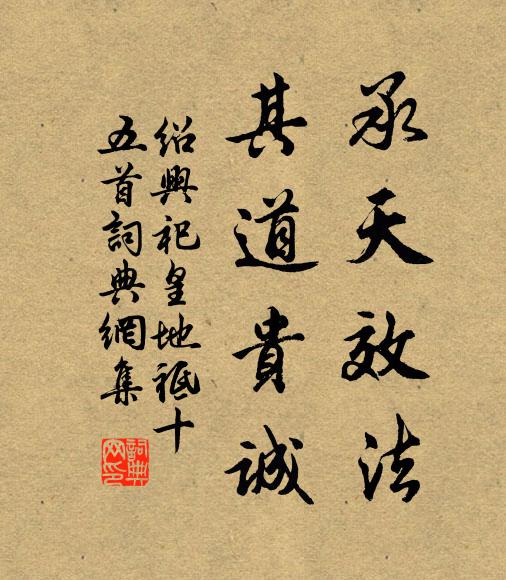 承天效法
其道貴誠
紹興祀皇地祗十
五首詞典網集
詞典
网印